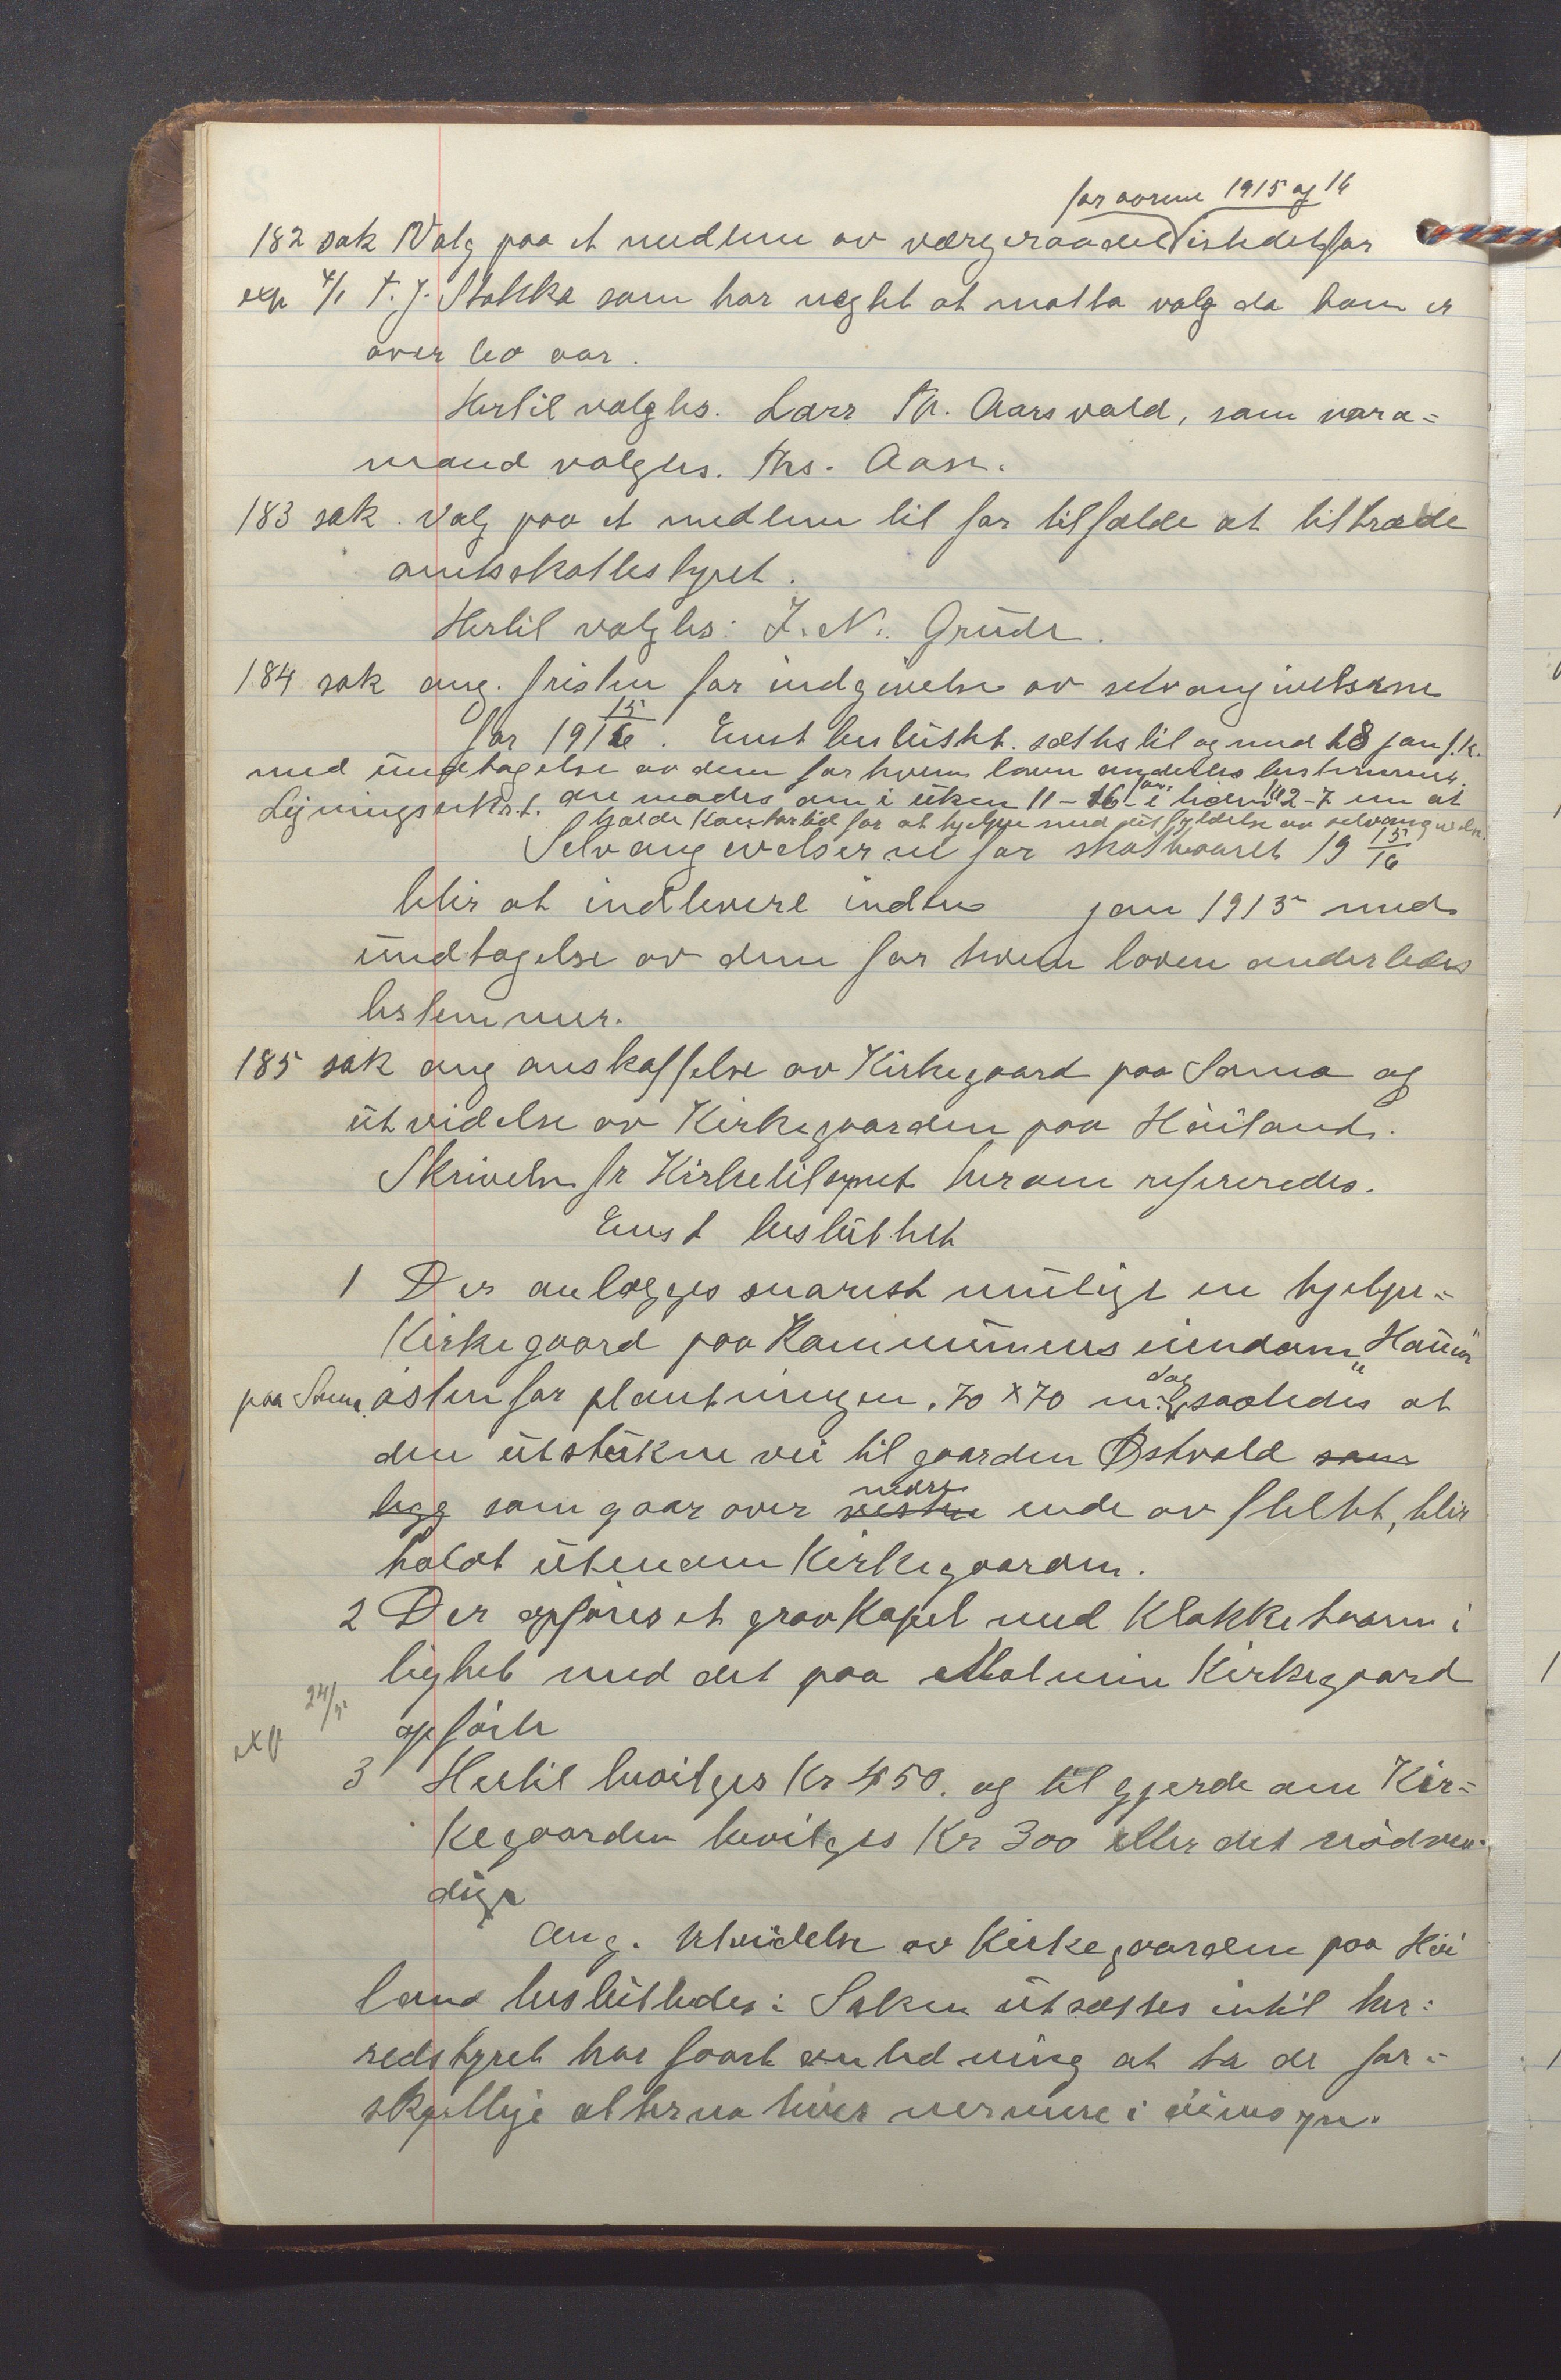 for aarene 1915 og 16
182 sak Valg paa et medlem av vergeraadet istedetfor
exp 4/1 T. J. Stokka som har negtet at motta valg da han er
over 60 aar.
Hertil valgtes. Lars Th. Aarsvold, som vara=
mand valgtes. Ths. Aase.
183 sak. Valg paa et medlem til for tilfælde at tiltræde
amtsskattestyret.
Hertil valgtes: J. N. Grude.
184 sak ang. fristen for indgivelse av selvangivelserne
for 1915/16. Enst besluttet. sættes til og med 18 jan f. k.
med undtagelse av dem for hvem loven anderledes bestemmer,
Ligningssekr. f. an i uken 11-16 jan. i kl 2-7 em at
holde Kontortid for at hjelpe med utfyldelse av selvangivelse.
Selvangivelserne for skatteaaret 19 15/16
blir at indlevere inden jan 1915 med
undtagelse av dem for hvem loven anderledes
bestemmer.
185 sak ang anskaffelse av Kirkegaard paa Soma og
utvidelse av Kirkegaarden paa Höiland.
Skrivelse fr Kirketilsynet herom refereredes.
Enst besluttet
1 Der anlægges snarest mulige en hjelpe=
Kirkegaard paa Kommunens eiendom
paa Soma østenfor plantningen. 70 x 70 m. dog saaledes at
den utstukne vei til gaarden Østvold som
legg som gaar over nedre vestre ende av feltet, blir
holdt utenom Kirkegaarden.
2 Der opføres et gravkapel med Klokketaarn i
lighet med det paa Malmin Kirkegaard
24/5
exp opförte
3 Hertil bevilges Kr 450. og til gjerde om Kir=
kegaarden bevilges Kr 300 eller det nödven=
dige
Ang. Utvidelse av Kirkegaarden paa Höi
land besluttedes: Saken utsættes intil her=
redstyret har faat anledning at ta de for=
skjellige alternativer nermere i øiesyn.